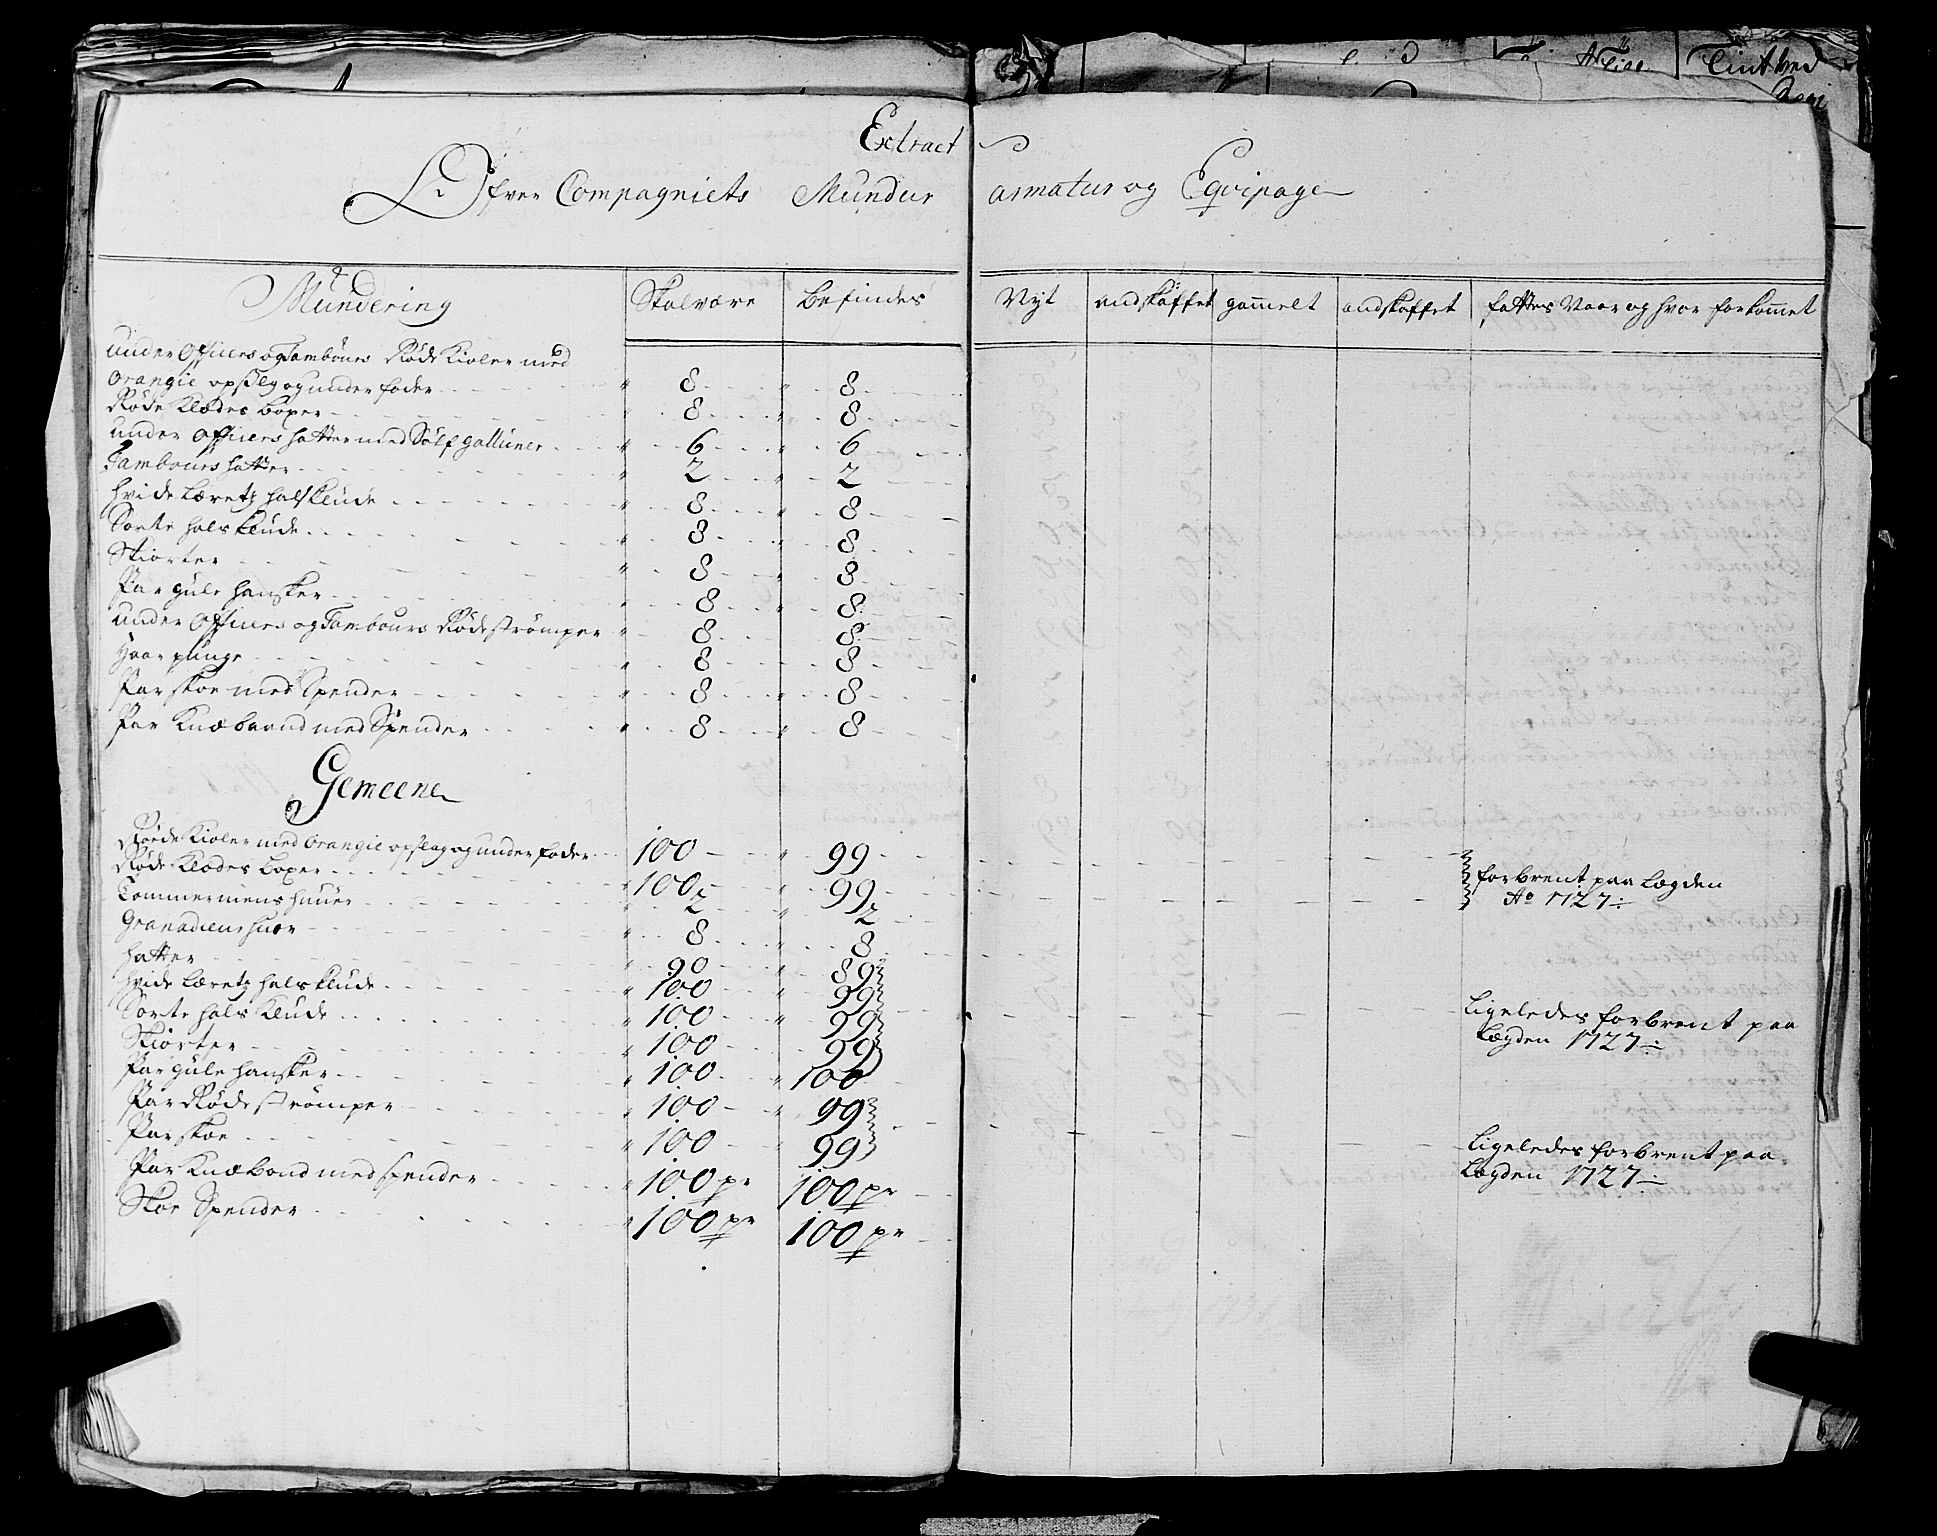 Extract
Ofver Compagniets Mundur armatur og Eqvipage
Mundering Skalvære befindes Nyt andskaffet gammelt andskaffet fattes Naar og hvor forkommet
under Officers og Tambours Røde Kioler med
Orangie opslag og under foder 8 8
Røde Klædes boxer 8 8
under Officers hatter med Sølf galluner 6 6
Tambours hatter 2 2
hvide Lærretz halsklude 8 8
Sorte halsklude 8 8
Skiorter 8 8
Par gule hansker 8 8
under Officers og Tambours Røde strømper 8 8
Haar punge 8 8
Par skoe med Spender 8 8
Par Knæbaand med Spender 8 8
Gemeene
Røede Kioler med orangie opslag og under foder 100 99
Røde Klædes boxer 100 99 forbrent paa Lægden
Tommermens huuer 2 2 Ao 1727
Granadeer huer 8 8
hatter 90 89
hvide Lærretz halsklude 100 99
Sorte halsklude 100 99 Ligeledes forbrent paa
Skiorter 100 99 Lægden 1727
Par gule hansker 100 100
Par Røde strømper 100 99
Par skoe 100 99 Ligeledes forbrent paa
Par Knæbaand med spender 100 pr 100 pr Lægden 1727
Skoe Spender 100 pr 100 pr